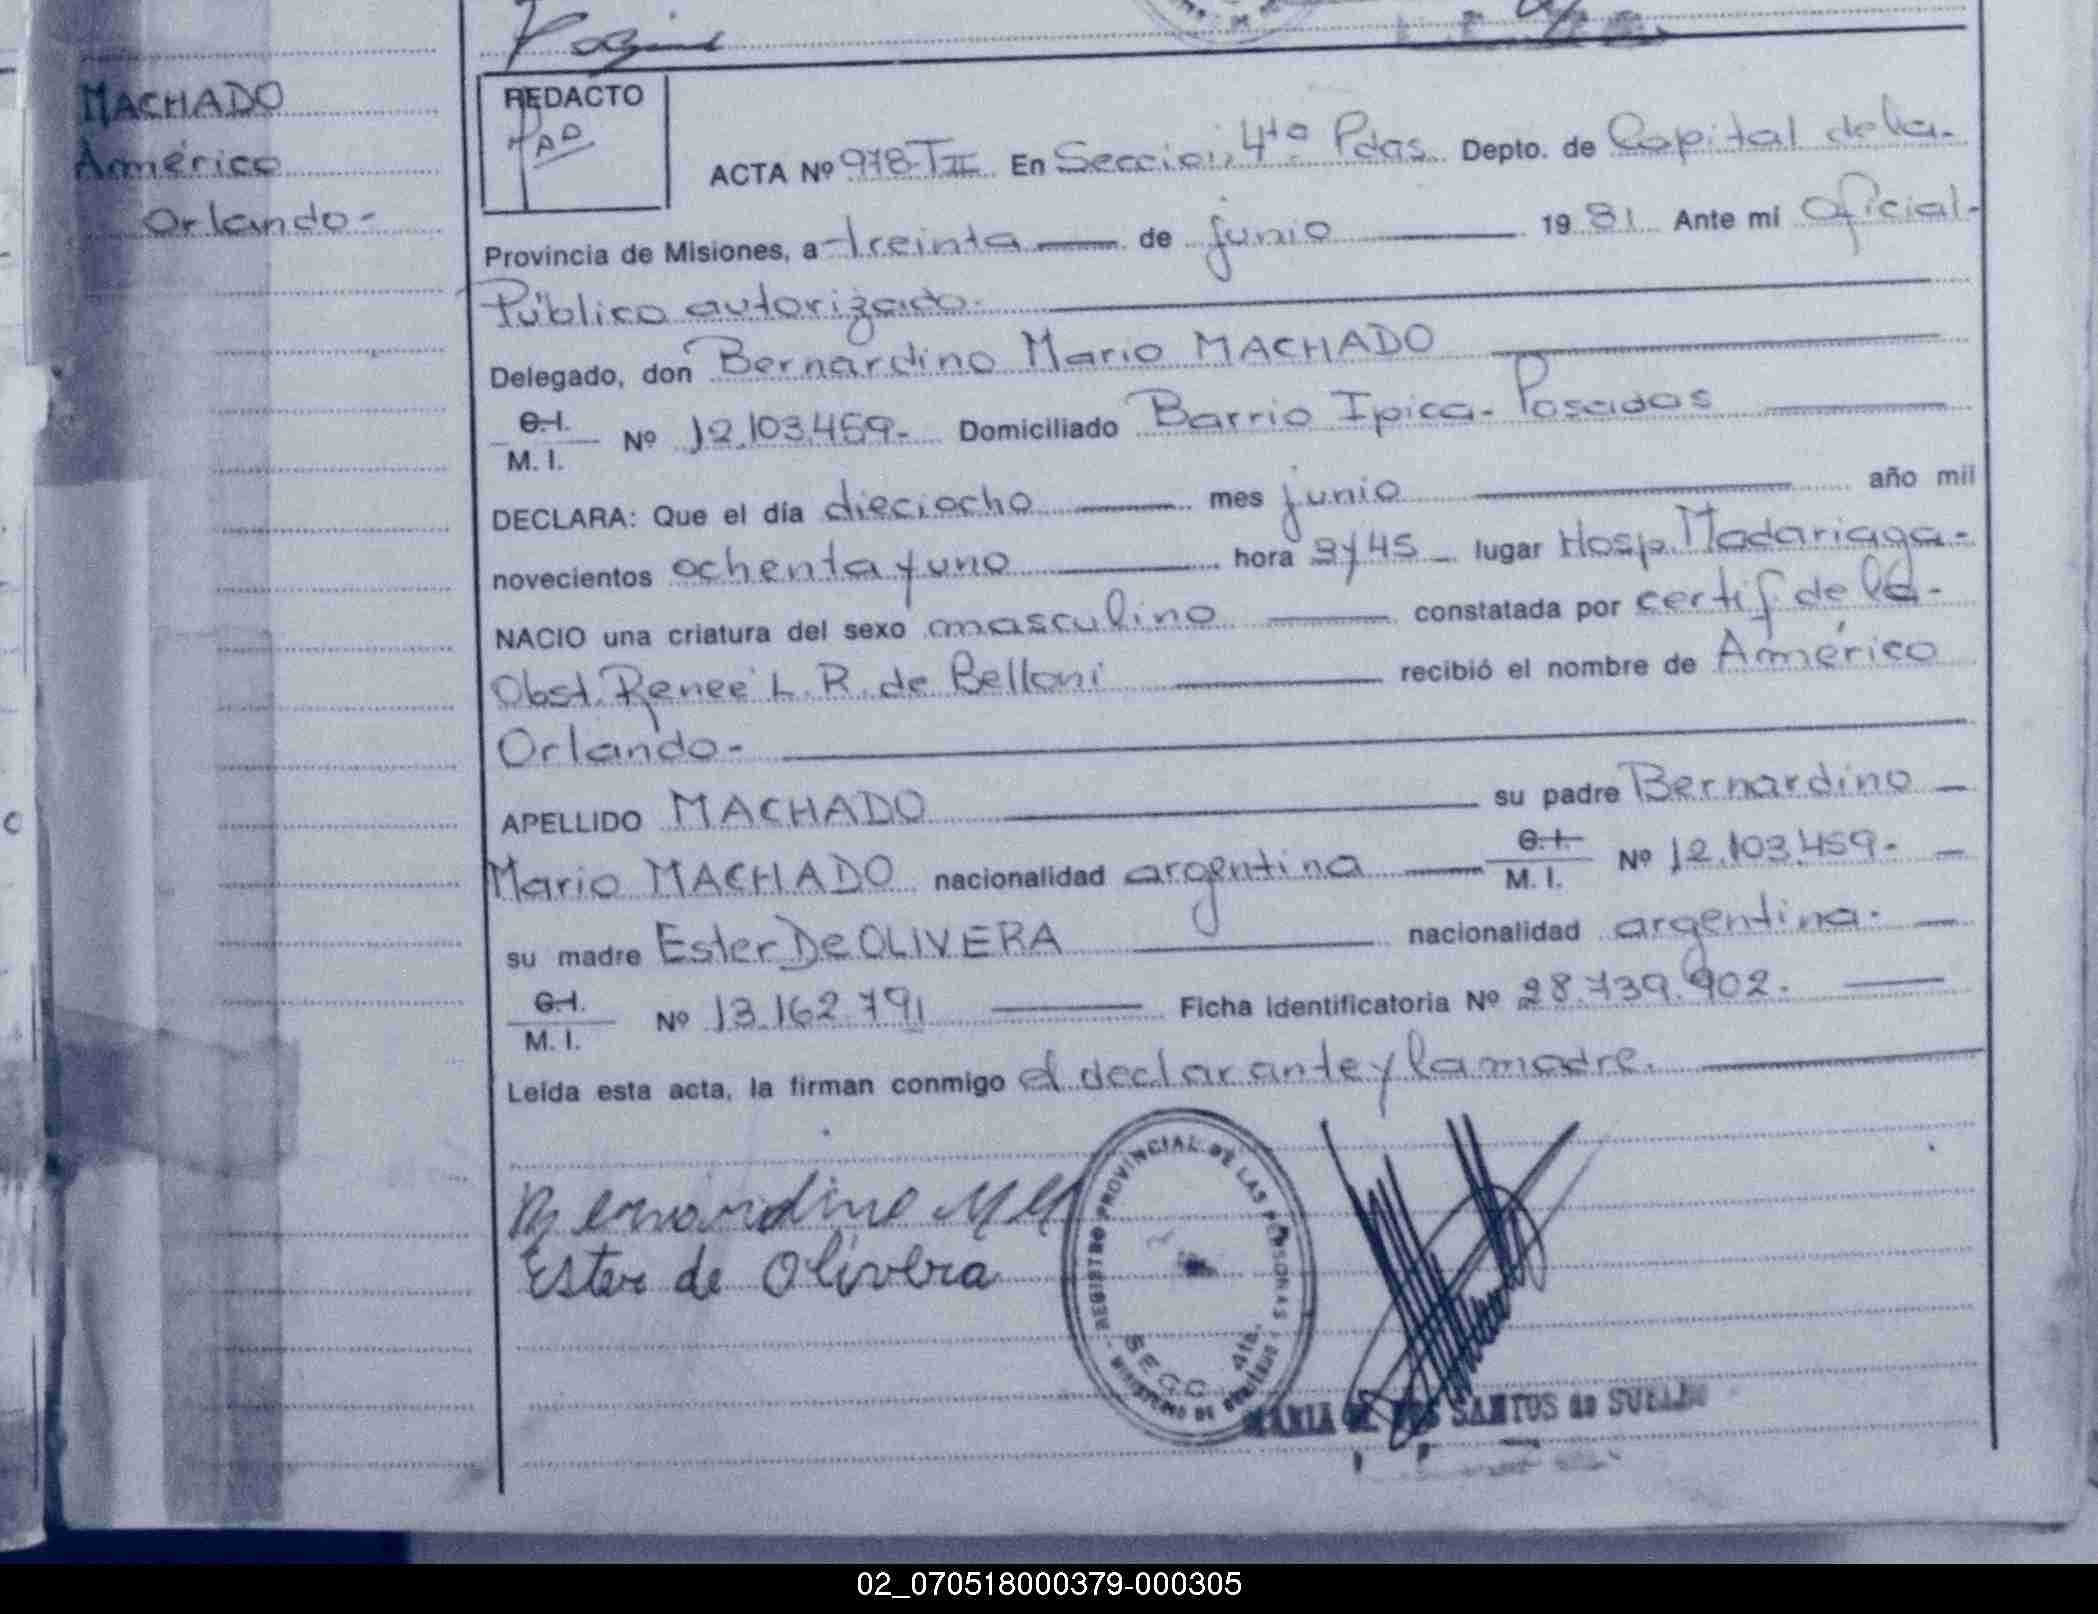 MACHADO
Américo
Orlando-
REDACTO
ACTA Nº 978-TII En Sección 4ta. Pdas. Depto. de Capital de la-
Provincia de Misiones, a treinta de junio 1981 Ante mi Oficial-
Público autorizado.
Delegado, don Bernardino Mario MACHADO
C.I. M.I. Nº 12.103.459- Domiciliado Barrio Ipica- Posadas
DECLARA: Que el día dieciocho mes junio año mil
novecientos ochenta y uno hora 3y45 lugar Hosp. Madariaga-
NACIO una criatura del sexo masculino constatada por certif. de la-
Obst. Renee L. R. de Belloni recibió el nombre de Américo
Orlando-
APELLIDO MACHADO su padre Bernardino
Mario MACHADO nacionalidad argentina C.I. M.I. Nº 12.103.459-
su madre Ester De OLIVERA nacionalidad argentina.
C.I. M.I. Nº 13.162.791 Ficha identificatoria Nº 28.739.902.
Leída esta acta, la firman conmigo el declarante y la madre.
Bernardino
Ester de Olivera
REGISTRO PROVINCIAL DE LAS PERSONAS
SECC. 4ta.
MARIA SANTOS de
02_070518000379-000305